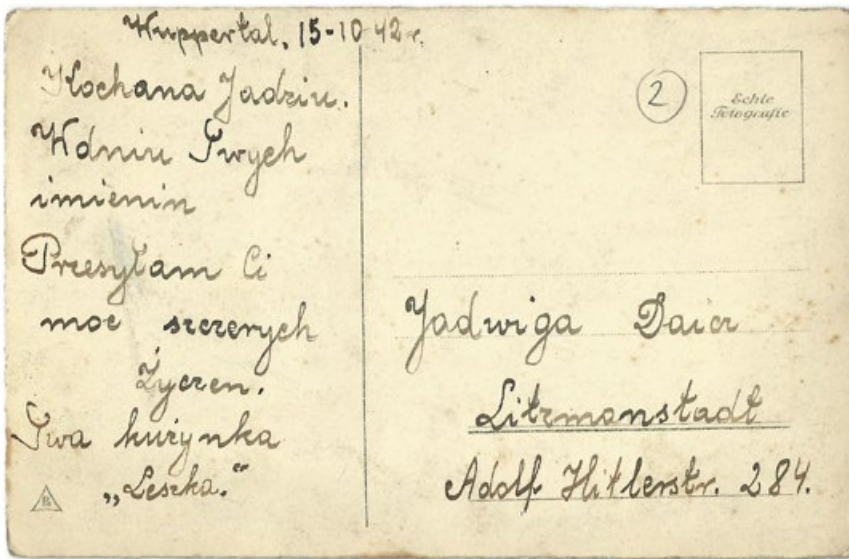 Wuppertal, 15-10-42r.
Kochana Jadziu.
W dniu Twych
imienin
Przesyłam Ci
moc szczerych
Życzen.
Twa kuzynka
„Leszka.“
2
Echte
Fotografie
Jadwiga
Litzmanstadt
Adolf Hitlerstr. 284.